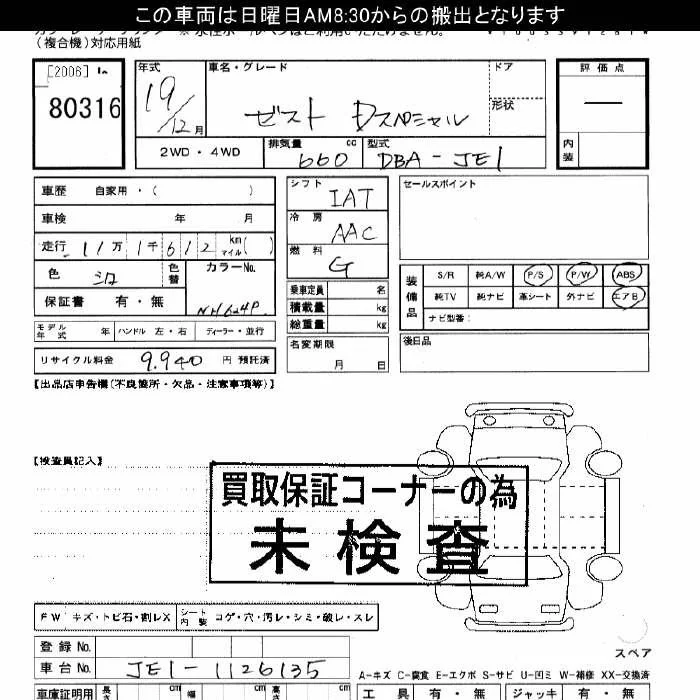 この車両は日曜日AM8:30からの搬出となります
(複合機)対応用紙
[2006]
80316
年式 19/12月
車名・グレード ゼスト Dスペシャル
ドア
形状
2WD・4WD
排気量 660 cc
型式 DBA-JE1
評価点 —
内装
車歴 自家用・( )
車検 年 月
走行 11万1千612 km マイル( )
色 シロ 色替
カラーNo. NH624P
保証書 有・無
モデル年式 年 ハンドル 左・右 ディーラー・並行
リサイクル料金 9.940 円 預託済
シフト IAT
冷房 AAC
燃料 G
乗車定員 名
積載量 kg
総重量 kg
名変期限 月 日
セールスポイント
装備品
S/R 純A/W P/S P/W ABS
純TV 純ナビ 革シート 外ナビ エアB
ナビ型番:
後日品
【出品店申告欄(不良箇所・欠品・注意事項等)】
【検査員記入】
買取保証コーナーの為
未検査
FW キズ・トビ石・割レX
シート内装 コゲ・穴・汚レ・シミ・破レ・スレ
登録No.
車台No. JE1-1126135
スペア
A-キズ C-腐食 E-エクボ S-サビ U-凹ミ W-補修 XX-交換済
車庫証明用 長さ cm 幅 cm 高さ cm
工具 有・無 ジャッキ 有・無